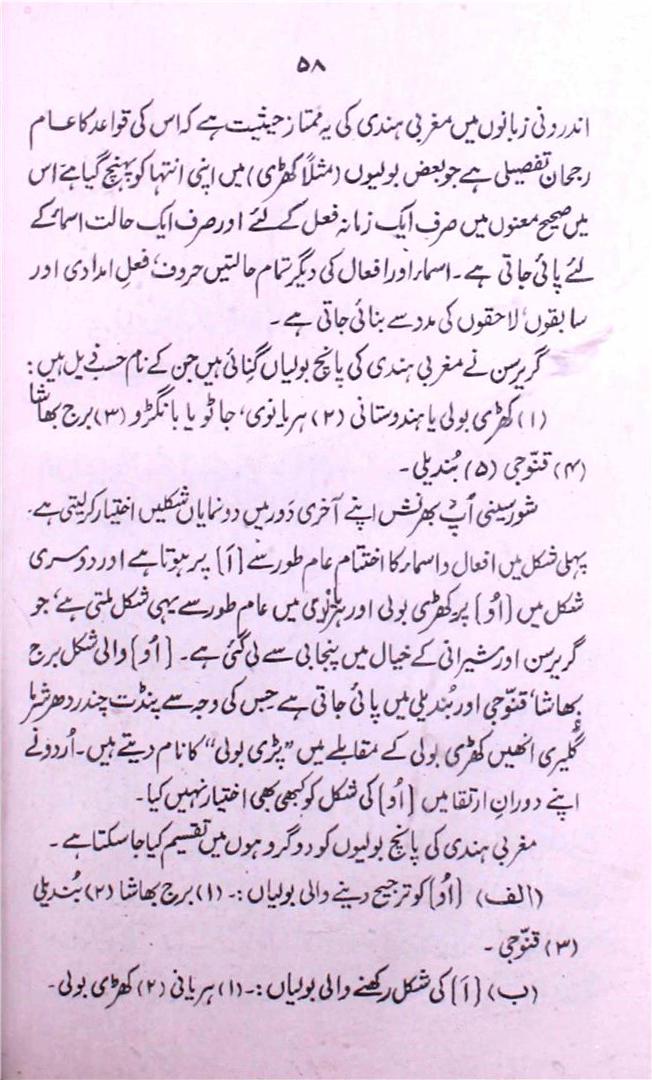 ۵۸
اندرونی زبانوں میں مغربی ہندی کی یہ ممتاز حیثیت ہے کہ اس کی قواعد کا عام
رجحان تفصیلی ہے جو بعض بولیوں (مثلاً کھڑی) میں اپنی انتہا کو پہنچ گیا ہے اس
میں صحیح معنوں میں صرف ایک زمانہ فعل کے لئے اور صرف ایک حالت اسماء کے
لئے پائی جاتی ہے۔ اسماء اور افعال کی دیگر تمام حالتیں حروف، فعل امدادی اور
سابقوں، لاحقوں کی مدد سے بنائی جاتی ہے۔
گریرسن نے مغربی ہندی کی پانچ بولیاں گنائی ہیں جن کے نام حسب ذیل ہیں:
(۱) کھڑی بولی یا ہندوستانی (۲) ہریانوی، جاٹو یا بانگڑو (۳) برج بھاشا
(۴) قنّوجی (۵) بُندیلی۔
شورسینی اَپ بھرنش اپنے آخری دَور میں دو نمایاں شکلیں اختیار کر لیتی ہے۔
پہلی شکل میں افعال و اسماء کا اختتام عام طور سے [اَ] پر ہوتا ہے اور دوسری
شکل میں [اُو] پر کھڑی بولی اور ہریانوی میں عام طور سے یہی شکل ملتی ہے، جو
گریرسن اور شیرانی کے خیال میں پنجابی سے لی گئی ہے۔ [اُو] والی شکل برج
بھاشا، قنّوجی اور بُندیلی میں پائی جاتی ہے جس کی وجہ سے پنڈت چندر دھر شرما
گلیری انھیں کھڑی بولی کے مقابلے میں ”پڑی بولی“ کا نام دیتے ہیں۔ اُردو نے
اپنے دورانِ ارتقا میں [اُو] کی شکل کو کبھی بھی اختیار نہیں کیا۔
مغربی ہندی کی پانچ بولیوں کو دو گروہوں میں تقسیم کیا جا سکتا ہے۔
(الف) [اُو] کو ترجیح دینے والی بولیاں :۔ (۱) برج بھاشا (۲) بُندیلی
(۳) قنّوجی۔
(ب) [اَ] کی شکل رکھنے والی بولیاں :۔ (۱) ہریانی (۲) کھڑی بولی۔